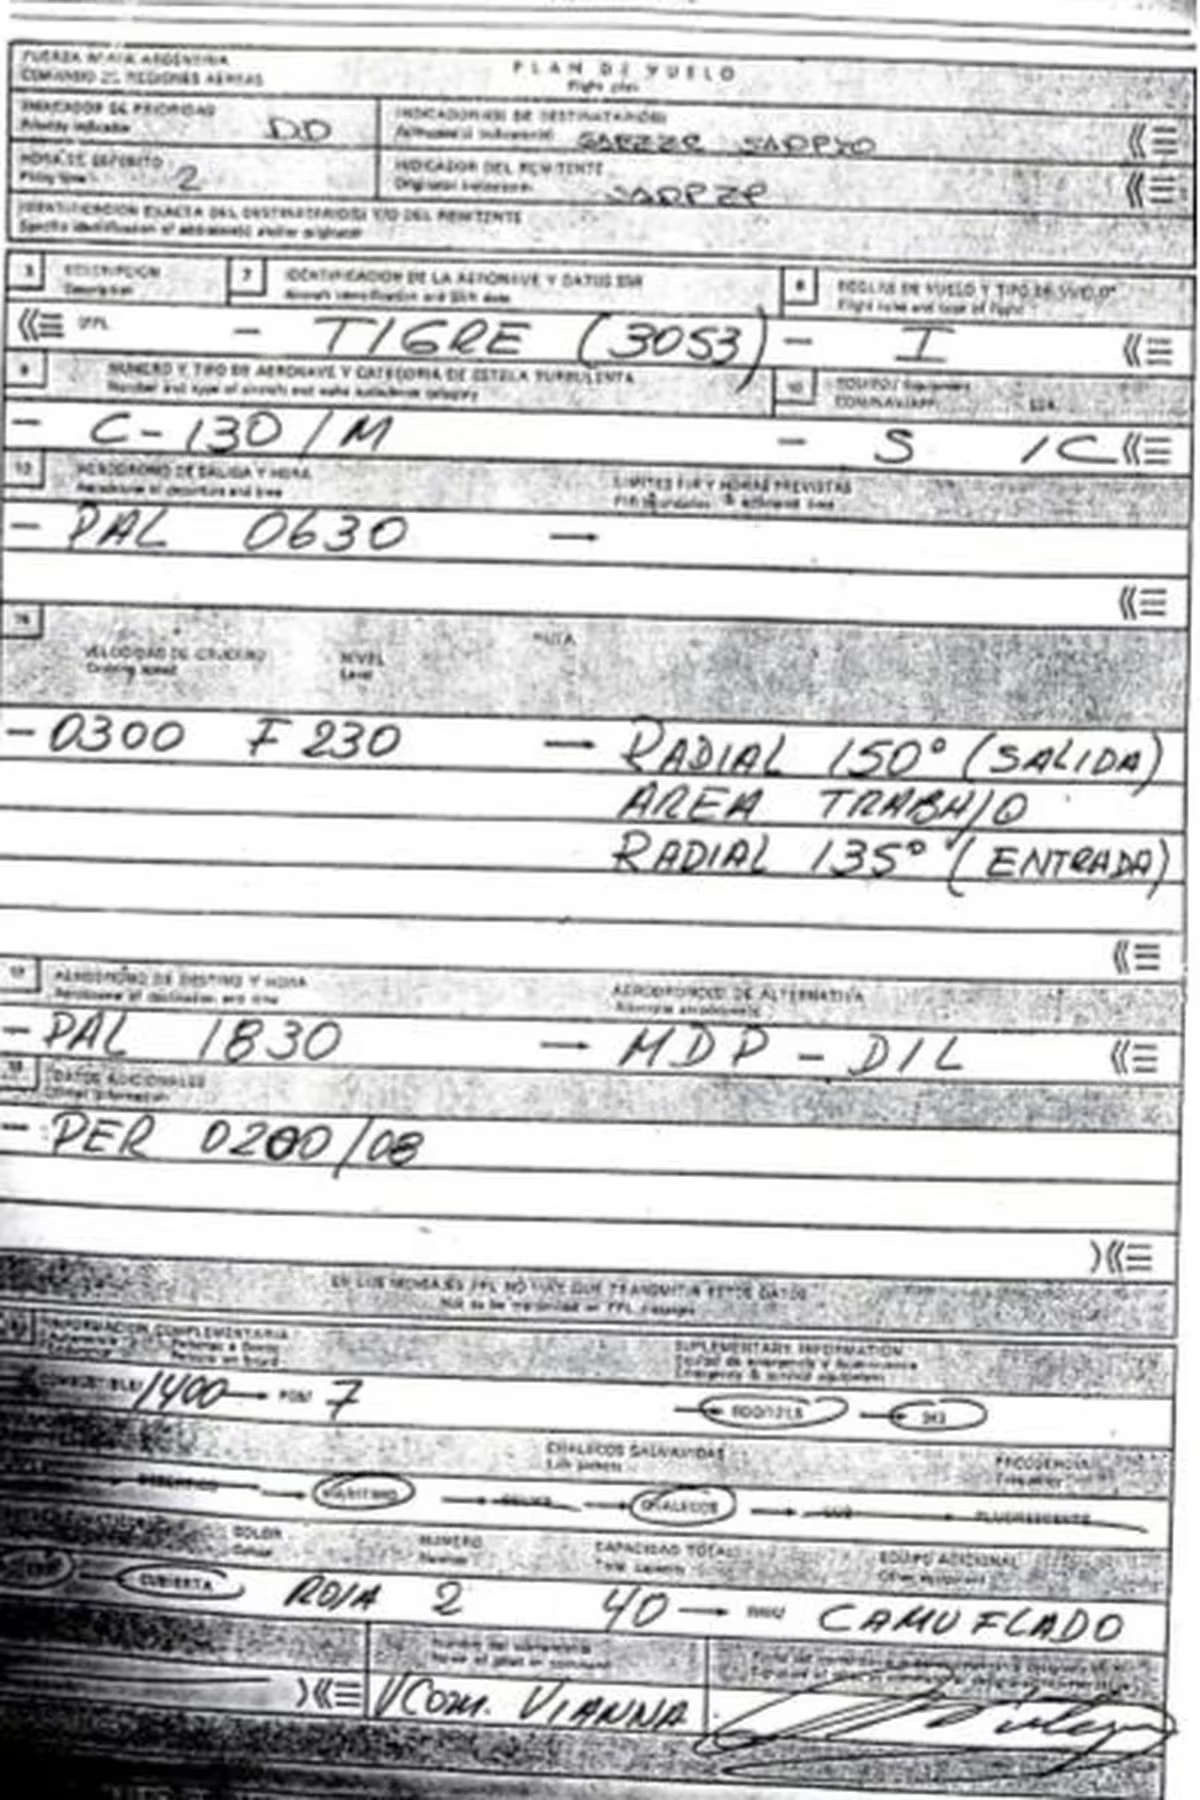 FUERZA AEREA ARGENTINA
COMANDO DE REGIONES AEREAS
PLAN DE VUELO
Flight plan
INDICADOR DE PRIORIDAD
Priority indicator
DD
INDICADOR(ES) DE DESTINATARIO(S)
HORA DE DEPOSITO
Filing time
2
INDICADOR DEL REMITENTE
Originator indicator
IDENTIFICACION EXACTA DEL DESTINATARIO(S) Y/O DEL REMITENTE
3 DESCRIPCION
Description
7 IDENTIFICACION DE LA AERONAVE Y DATOS SSR
Aircraft identification and SSR data
8 REGLAS DE VUELO Y TIPO DE VUELO
Flight rules and type of flight
- TIGRE (3053) - I
9 NUMERO Y TIPO DE AERONAVE Y CATEGORIA DE ESTELA TURBULENTA
Number and type of aircraft and wake turbulence category
10 EQUIPO Equipment
COM/NAV/APP SSR
- C-130/M - S /C
13 AERODROMO DE SALIDA Y HORA
Aerodrome of departure and time
LIMITES FIR Y HORAS PREVISTAS
- PAL 0630 →
VELOCIDAD DE CRUCERO
Cruising speed
NIVEL
Level
RUTA
- 0300 F 230 → RADIAL 150° (SALIDA)
AREA TRABAJO
RADIAL 135° (ENTRADA)
17 AERODROMO DE DESTINO Y HORA
Aerodrome of destination and time
AERODROMO(S) DE ALTERNATIVA
Alternate aerodrome(s)
- PAL 1830 → MDP - DIL
DATOS ADICIONALES
Other information
- PER 0200/08
EN LOS MENSAJES FPL NO HAY QUE TRANSMITIR ESTOS DATOS
Not to be transmitted in FPL messages
INFORMACION COMPLEMENTARIA
Personas a bordo
Persons on board
SUPLEMENTARY INFORMATION
Equipo de emergencia y supervivencia
Emergency & survival equipment
COMBUSTIBLE/ 1400 → POB/ 7 → →243
CHALECOS SALVAVIDAS
Life jackets
FRECUENCIA
→ MARITIMO → → CHALECOS → → FLUORESCENTE
COLOR
Colour
NUMERO
Number
CAPACIDAD TOTAL
Total capacity
EQUIPO ADICIONAL
Other equipment
→ CUBIERTA ROJA 2 40 → CAMUFLADO
VCOM. VIANNA